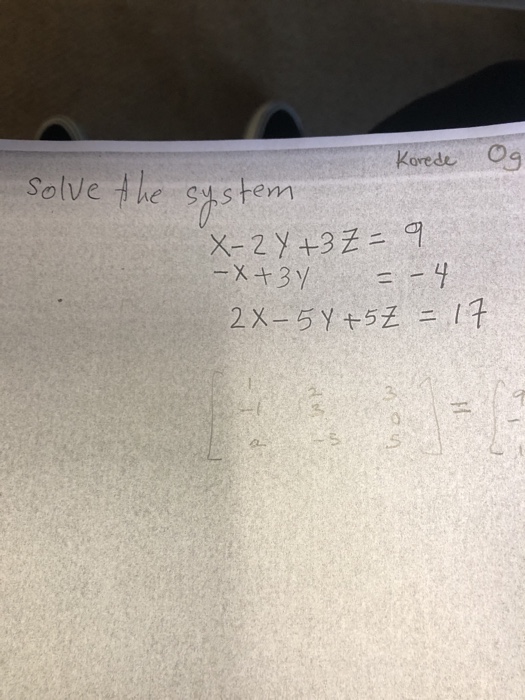 Korede Og
Solve the system
X-2Y+3Z = 9
-X+3Y = -4
2X-5Y+5Z = 17
[ 1 2 3 ] = [ 9
-1 3 0 -
2 -5 5 1